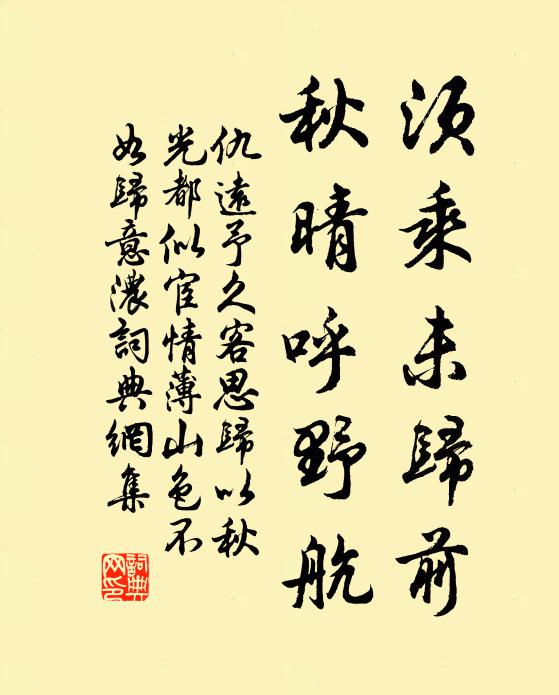 须乘未歸前
秋晴呼野航
仇遠予久客思歸以秋
光都似宦情薄山色不
如歸意濃詞典網集
詞典
网印